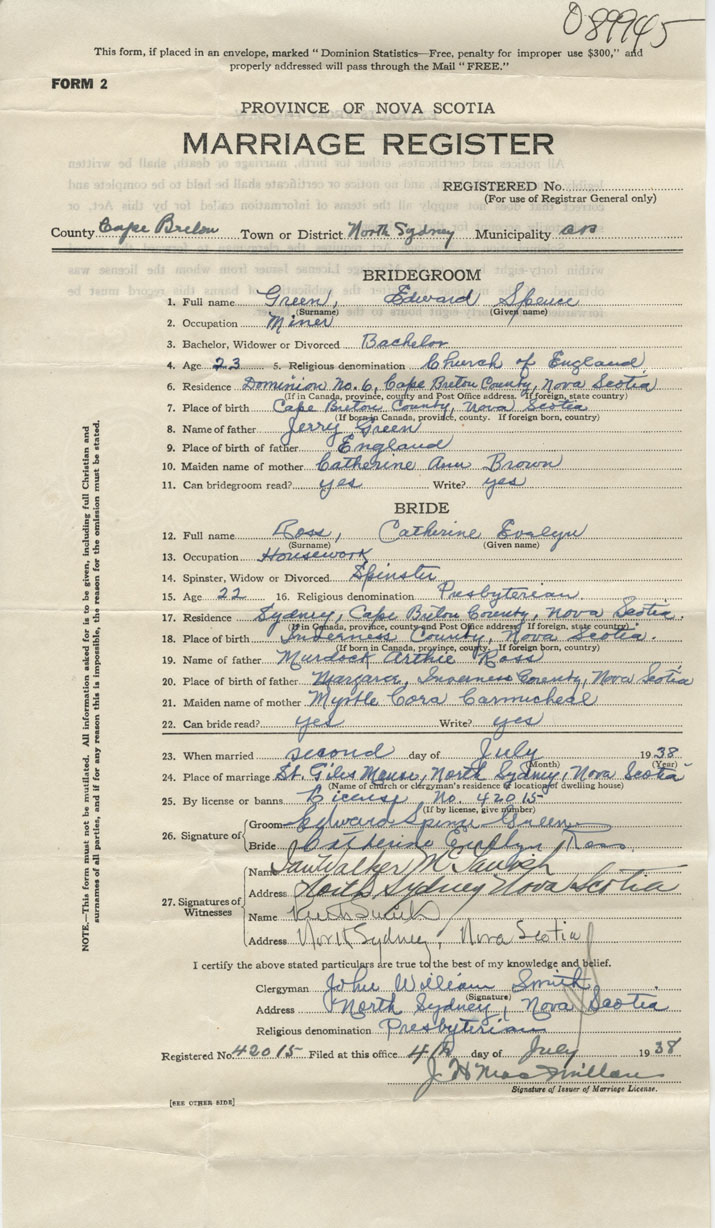 089945
This form, if placed in an envelope, marked "Dominion Statistics—Free, penalty for improper use $300," and
properly addressed will pass through the Mail "FREE."
FORM 2
PROVINCE OF NOVA SCOTIA
MARRIAGE REGISTER
REGISTERED No.
(For use of Registrar General only)
County Cape Breton Town or District North Sydney Municipality
BRIDEGROOM
1. Full name Green, Edward Spence
(Surname) (Given name)
2. Occupation Miner
3. Bachelor, Widower or Divorced Bachelor
4. Age 23 5. Religious denomination Church of England
6. Residence Dominion No. 6, Cape Breton County, Nova Scotia
(If in Canada, province, county and Post Office address. If foreign, state country)
7. Place of birth Cape Breton County, Nova Scotia
(If born in Canada, province, county. If foreign born, country)
8. Name of father Jerry Green
9. Place of birth of father England
10. Maiden name of mother Catherine Ann Brown
11. Can bridegroom read? yes Write? yes
BRIDE
12. Full name Ross, Catherine Evalyn
(Surname) (Given name)
13. Occupation Housework
14. Spinster, Widow or Divorced Spinster
15. Age 22 16. Religious denomination Presbyterian
17. Residence Sydney, Cape Breton County, Nova Scotia.
(If in Canada, province, county and Post Office address. If foreign, state country)
18. Place of birth Inverness County, Nova Scotia.
(If born in Canada, province, county. If foreign born, country)
19. Name of father Murdock Arthie Ross
20. Place of birth of father Margaree, Inverness County, Nova Scotia
21. Maiden name of mother Myrtle Cora Carmicheal
22. Can bride read? yes Write? yes
23. When married second day of July 1938
(Month) (Year)
24. Place of marriage St. Giles Manse, North Sydney, Nova Scotia
(Name of church or clergyman's residence or location of dwelling house)
25. By license or banns License No. 42015
(If by license, give number)
26. Signature of
Groom Edward Spence Green
Bride Catherine Evelyn Ross
27. Signatures of Witnesses
Name Ian Walker
Address North Sydney Nova Scotia
Name
Address North Sydney, Nova Scotia
I certify the above stated particulars are true to the best of my knowledge and belief.
Clergyman John William Smith
(Signature)
Address North Sydney, Nova Scotia
Religious denomination Presbyterian
Registered No. 42015 Filed at this office 4th day of July 1938
J H MacMillan
Signature of Issuer of Marriage License.
[SEE OTHER SIDE]
NOTE.—This form must not be mutilated. All information asked for is to be given, including full Christian and
surnames of all parties, and if for any reason this is impossible, the reason for the omission must be stated.